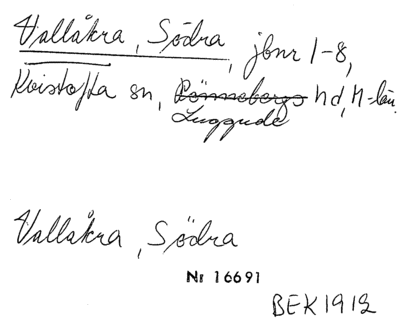 Vallåkra, Södra, jbnr 1-8,
Kvistofta sn, Rönnebergs hd, M-län
Luggude
Vallåkra, Södra
Nr 16691
BEK 1912